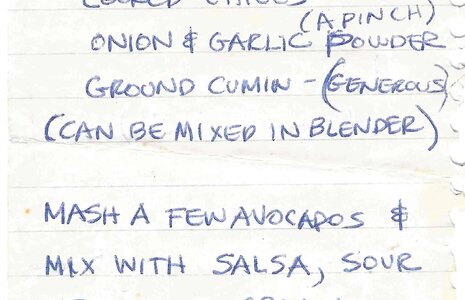 (A PINCH)
ONION & GARLIC POWDER
GROUND CUMIN - (GENEROUS)
(CAN BE MIXED IN BLENDER)
MASH A FEW AVOCADOS &
MIX WITH SALSA, SOUR